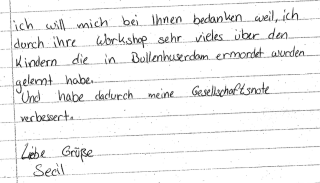 ich will mich bei Ihnen bedanken weil, ich
durch ihre Workshop sehr vieles über den
Kindern die in Bullenhuserdam ermordet wurden
gelernt habe.
Und habe dadurch meine Gesellschaftsnote
verbessert.
Liebe Grüße
Secil